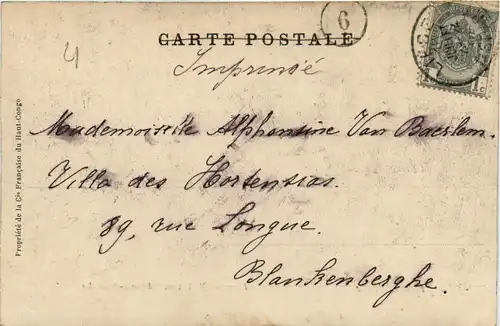 6
4
CARTE POSTALE
Imprimé
Mademoiselle Alphonsine Van Baeslem.
Villa des Hortensias.
89, rue Longue.
Blankenberghe.
Propriété de la Cie Française du Haut-Congo